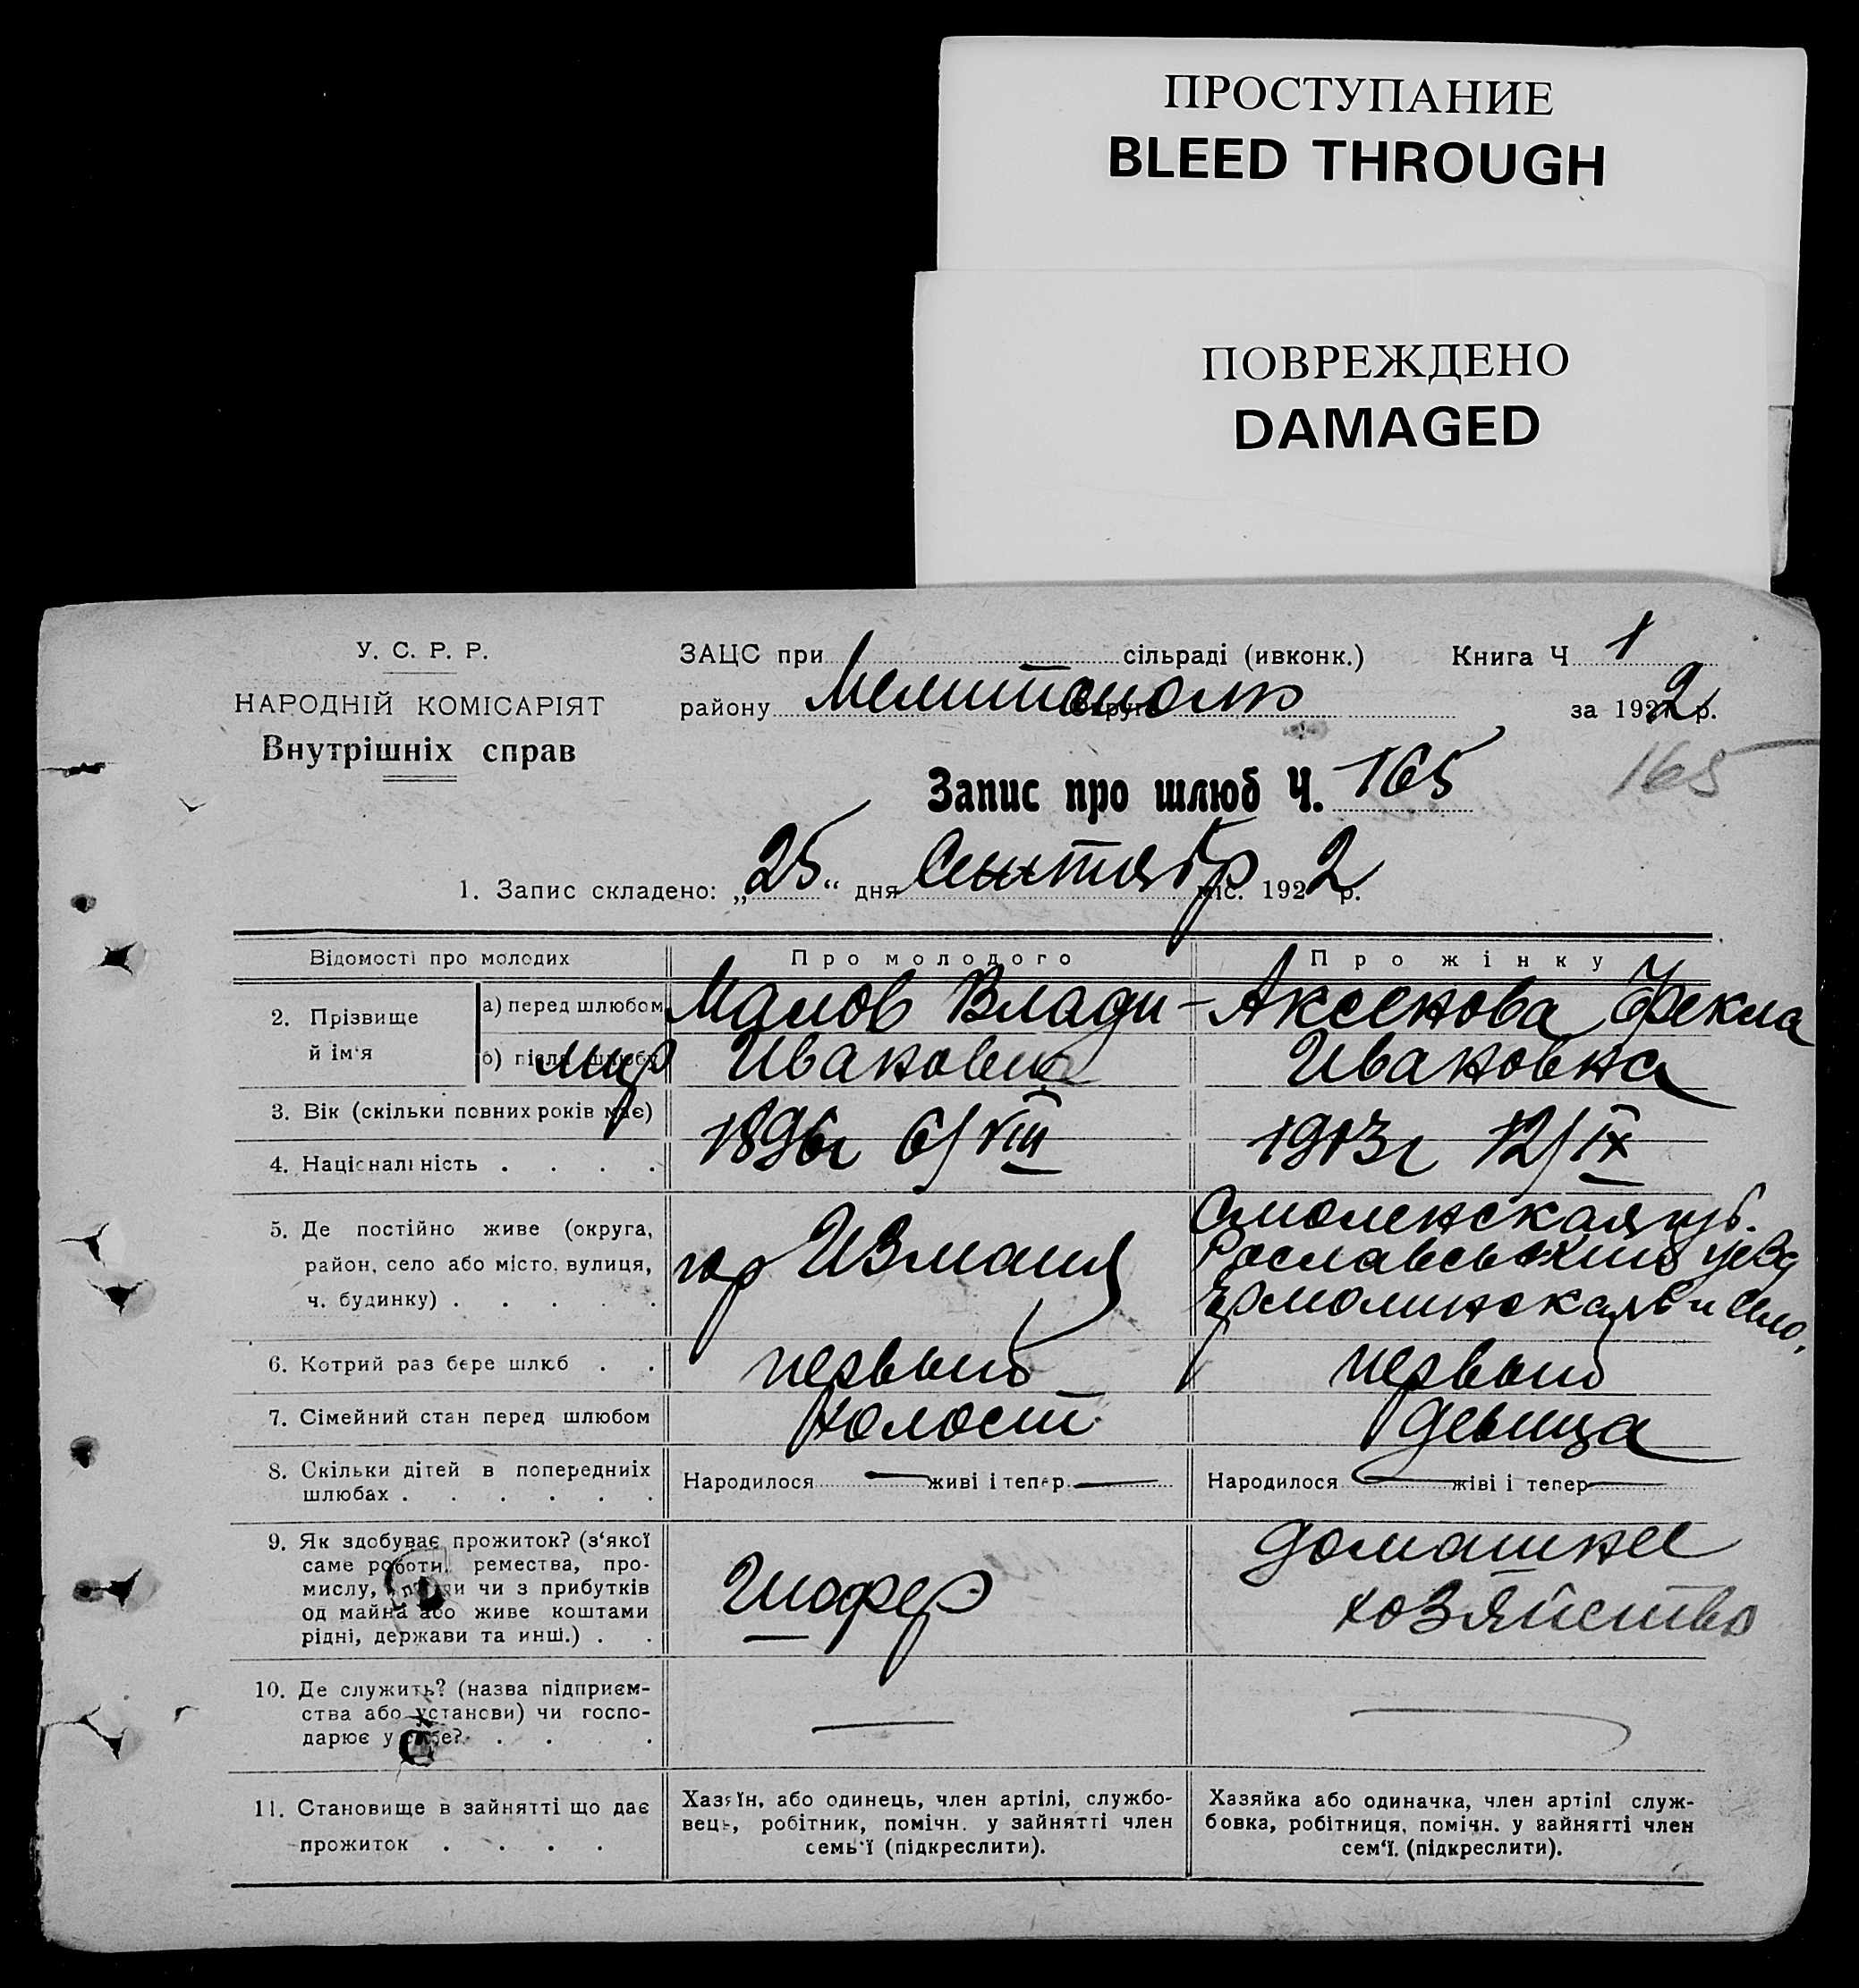 ПРОСТУПАНИЕ
BLEED THROUGH
ПОВРЕЖДЕНО
DAMAGED
У. С. Р. Р.
НАРОДНІЙ КОМІСАРІЯТ
Внутрішніх справ
ЗАЦС при сільраді (ивконк.) Книга Ч 1
району Мелитополь округи за 1922 р.
Запис про шлюб Ч. 165
165
1. Запис складено: „25“ дня Сентябр міс. 1922 р.
Відомості про молодих Про молодого Про жінку
2. Прізвище й ім'я а) перед шлюбом Влади- Аксенова Фекла
б) після шлюбу мир Иванович Ивановна
3. Вік (скільки повних років має)
1896г 6/VIII 1903г 12/IX
4. Національність . . . .
5. Де постійно живе (округа, Смоленская губ.
район, село або місто, вулиця, гор Измаил Рославський уезд
ч. будинку) . . . . . село,
6. Котрий раз бере шлюб . . первый первый
7. Сімейний стан перед шлюбом холост девица
8. Скільки дітей в попередниіх Народилося — живі і тепер — Народилося — жіві і тепер —
шлюбах . . . . . .
9. Як здобуває прожиток? (з‘якої домашнее
саме роботи, ремества, про-
мислу, чи з прибутків Шофер хозяйство
од майна або живе коштами
рідні, держави та инш.) . .
10. Де служить? (назва підприєм-
ства або установи) чи госпо- — —
дарює у себе? . . . .
11. Становище в зайнятті що дає Хазяїн, або одинець, член артілі, службо- Хазяйка або одиначка, член артілі служ-
прожиток . . . . вець, робітник, помічн. у зайнятті член бовка, робітниця, помічн. у зайнятті член
семь‘ї (підкреслити). сем‘ї. (підкреслити).